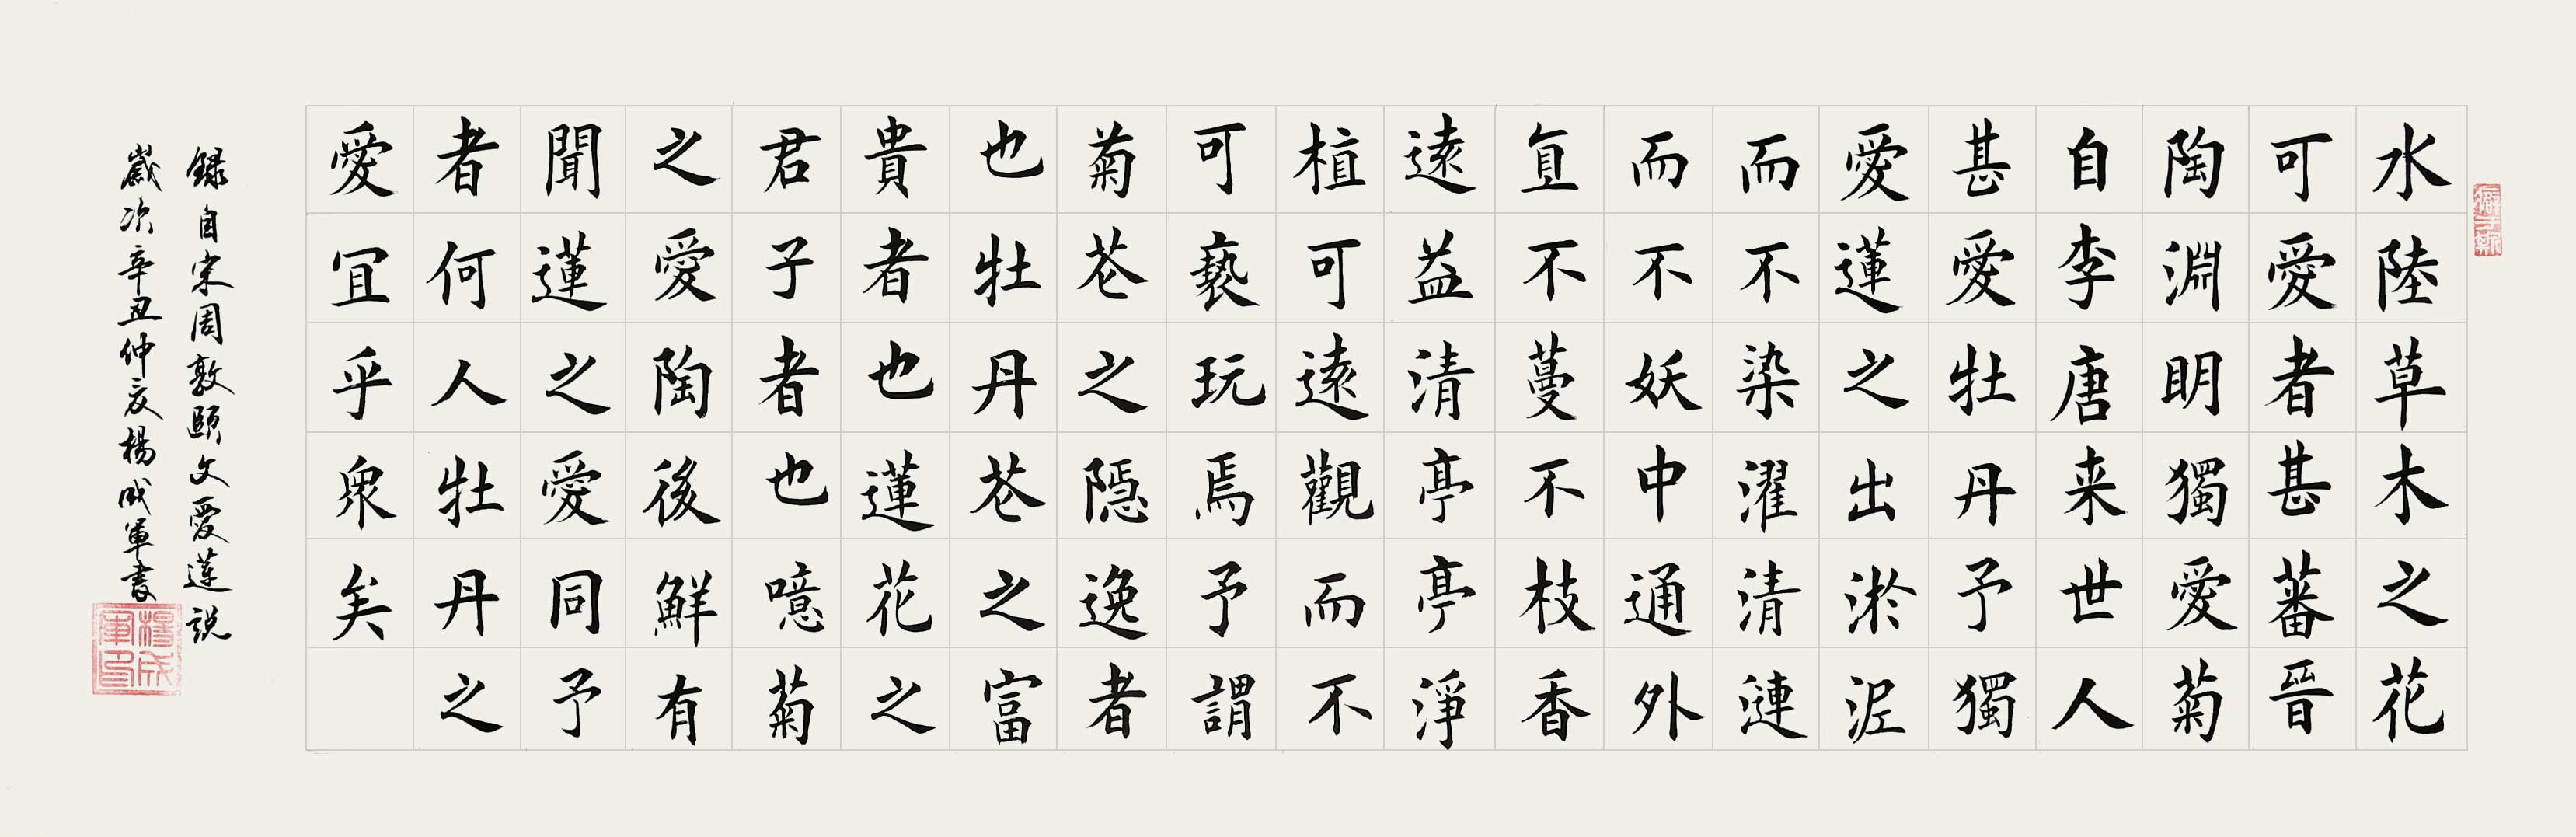 水陸草木之花
可愛者甚蕃晉
陶淵明獨愛菊
自李唐来世人
甚愛牡丹予獨
愛蓮之出淤泥
而不染濯清漣
而不妖中通外
直不蔓不枝香
遠益清亭亭淨
植可遠觀而不
可褻玩焉予謂
菊花之隱逸者
也牡丹花之富
貴者也蓮花之
君子者也噫菊
之愛陶後鮮有
聞蓮之愛同予
者何人牡丹之
愛宜乎眾矣
録自宋周敦頤文愛蓮説
歲次辛丑仲夏楊成軍書
楊成軍印